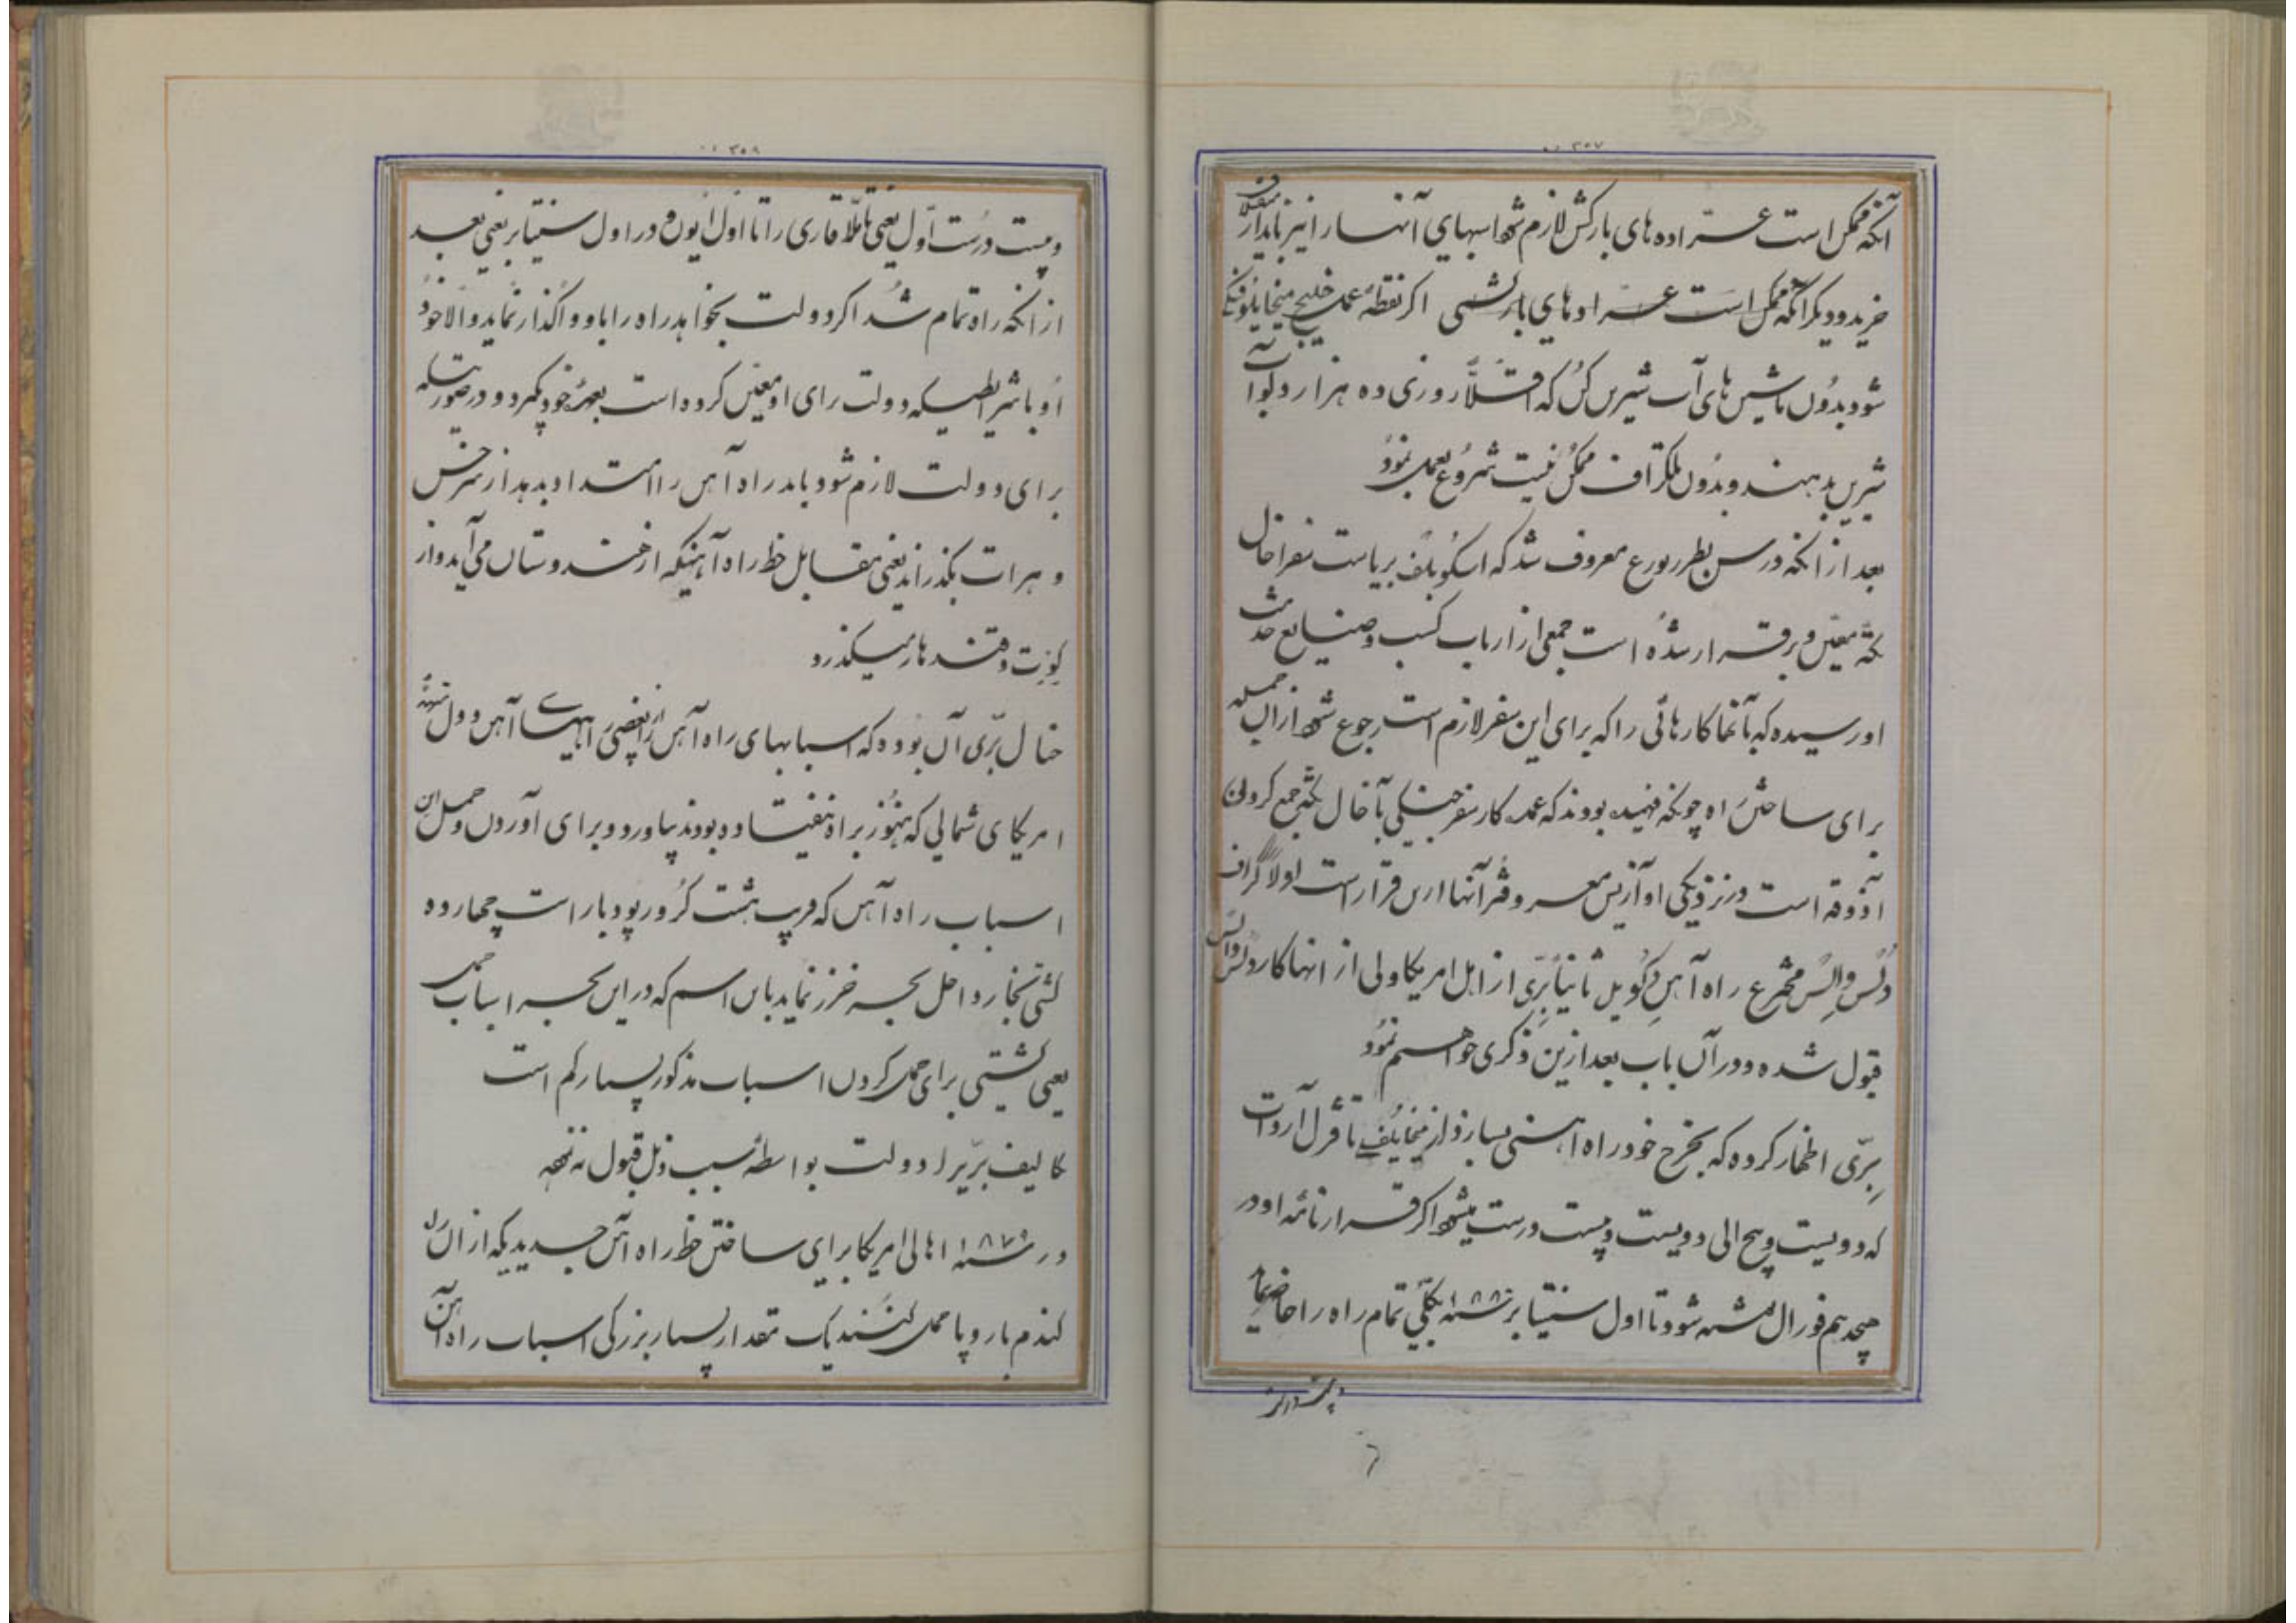 ۲۵۷
آنکه ممکن است عرّاده های بارکش لازم شود اسبهای آنها را نیز باید از متفرقه
خرید و دیگر آنکه ممکن است عرّادهای بارکشی اگر نقطهٔ عمل خلیج میخایلوفسکی
شود بدون ماشین های آب شیرین کن که اقلّاً روزی ده هزار ودلو آب
شیرین بدهند و بدون تلگراف ممکن نیست شروع بعمل نمود
بعد از آنکه در سن بطربورغ معروف شد که اسکوبلف بریاست سفر اخال
تکّه معیّن و برقرار شده است جمعی از ارباب کسب و صنایع خدمت
او رسیده که بآنها کارهائی را که برای این سفر لازم است رجوع شود از آن جمله
برای ساختن راه چونکه فهمیده بودند که عمده کار سفر جنگی بآخال تکّه جمع کردن
آذوقه است در نزدیکی او آزیس معروفتر آنها ازین قرار است اولاً گراف
دُلس والس مخترع راه آهن دکویل ثانیاً برّی از اهل امریکا ولی از انها کار دلس والس
قبول شده و در آن باب بعد ازین ذکری خواهیم نمود
برّی اظهار کرده که بخرج خود راه آهنی بسازد از میخایلف تا قزل آروات
که دویست و پنج الی دویست و بیست ورست میشود اگر قرارنامه او در
هیجدهم فورال ممضی شود تا اول سنتیابر سنه ۱۸۸۰ بکلّی تمام راه را حاضر نماید
بیست ورست
۲۵۸
و بیست ورست اوّل یعنی تا ملّا قاری را تا اوّل ایون و در اول سنتیابر یعنی بعد
از آنکه راه تمام شد اگر دولت بخواهد راه را باو واگذار نماید و الا خود
او با شرایطیکه دولت برای او معیّن کرده است بعهدهٔ خود بگیرد و در صورتیکه
برای دولت لازم شود باید راه آهن را امتداد بدهد از سرخس
و هرات بگذراند یعنی مقابل خط راه آهنیکه از هندوستان می آید و از
کوِت و قندهار میگذرد
خیال برّی آن بوده که اسبابهای راه آهن را از بعضی راههای آهن دول متحده
امریکای شمالی که هنوز براه نیفتاده بودند بیاورد و برای آوردن و حمل این
اسباب راه آهن که قریب هشت کرور پود بار است چهارده
کشتی بخار داخل بحر خزر نماید باین اسم که در این بحر اسباب حمل
یعنی کشتی برای حمل کردن اسباب مذکور بسیار کم است
تکالیف برّی را دولت بواسطهٔ سبب ذیل قبول ننمود
در سنه ۱۸۷۹ اهالی امریکا برای ساختن خط راه آهن جدیدیکه از آن راه
گندم باروپا حمل کنند یک مقدار بسیار بزرگی اسباب راه آهن